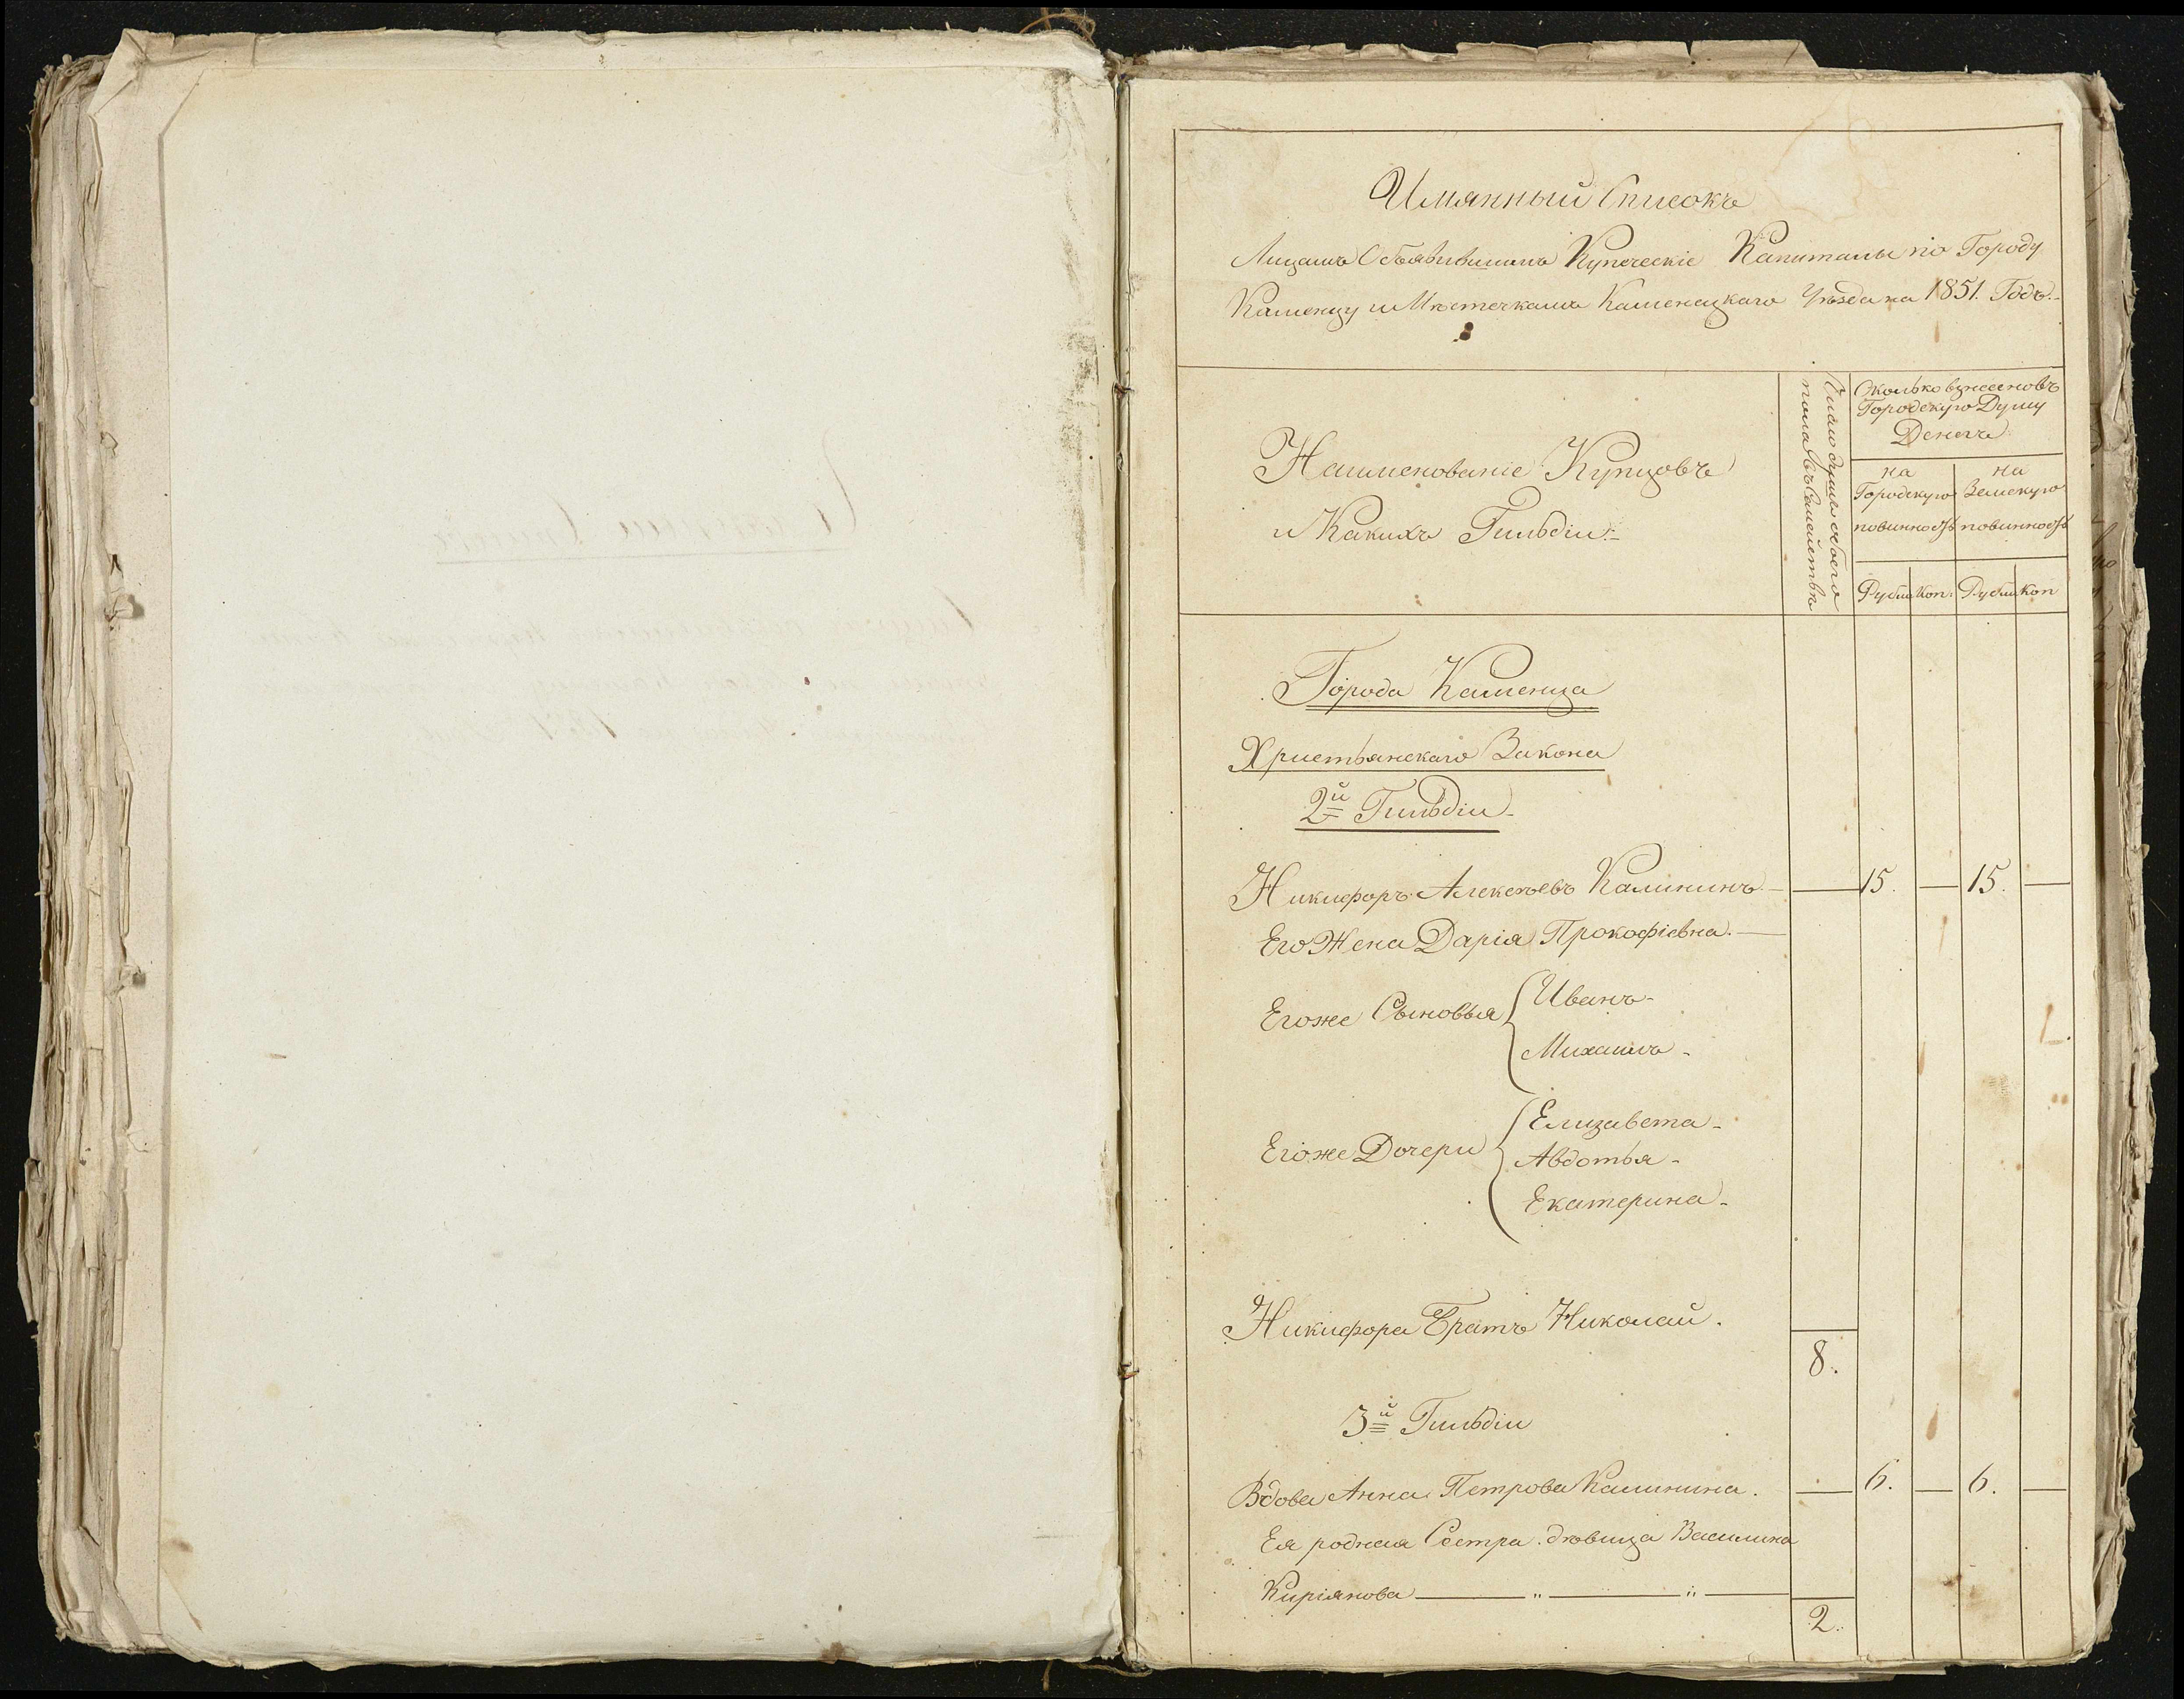 Имянный Списокъ
Лицамъ Объявившимъ Купеческіе Капиталы по Городу
Каменцу и Мѣстечкамъ Каменецкаго Уѣзда на 1851. Годъ.-
Наименованіе Купцовъ
и Какихъ Гильдіи:-
Число душъ обоего
пола въ Семействѣ
Сколько взнесеновъ
Городскую Думу
Денегъ
на
Городскую
повинность
на
Земскую
повинность
Рубли Коп. Рубли Коп
Города Каменца
Христьянскаго Закона
2й Гильдіи-
Никифоръ Алексѣевъ Калининъ — 15. — 15. —
Его Жена Дарія Прокофіевна.—
Егоже Сыновья
Иванъ-
Михаилъ-
Егоже Дочери
Елизавета-
Авдотья-
Екатерина-
Никифора Братъ Николай.
8.
3й Гильдіи
Вдова Анна Петрова Калинина. — 6. — 6. —
Ея родная Сестра дѣвица Василина
Киріянова — „ — „ —
2.